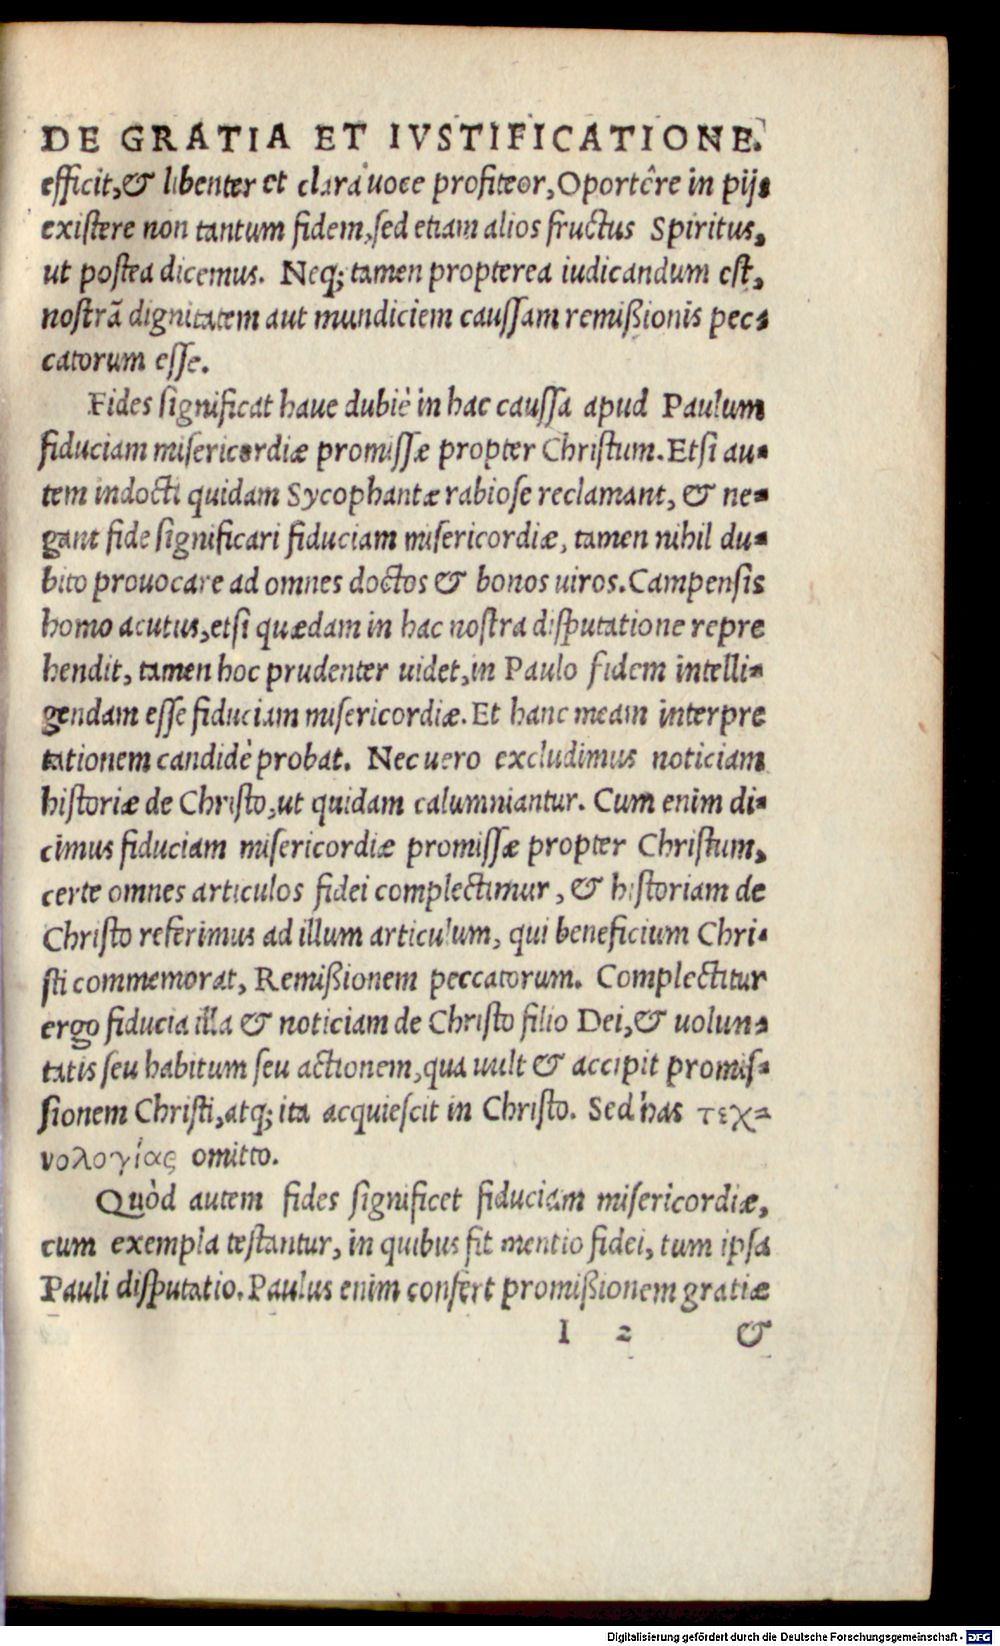 DE GRATIA ET IVSTIFICATIONE.
efficit,& libenter et clara uoce profiteor,Oportêre in pijs
existere non tantum fidem,sed etiam alios fructus Spiritus,
ut postea dicemus. Neq; tamen propterea iudicandum est,
nostrã dignitatem aut mundiciem caussam remißionis pec-
catorum esse.
Fides significat haue dubiè in hac caussa apud Paulum
fiduciam misericordiæ promissæ propter Christum.Etsi au-
tem indocti quidam Sycophantæ rabiose reclamant, & ne-
gant fide significari fiduciam misericordiæ, tamen nihil du-
bito prouocare ad omnes doctos & bonos uiros.Campensis
homo acutus,etsi quædam in hac nostra disputatione repre
hendit, tamen hoc prudenter uidet,in Paulo fidem intelli-
gendam esse fiduciam misericordiæ.Et hanc meam interpre
tationem candidè probat. Nec uero excludimus noticiam
historiæ de Christo,ut quidam calumniantur. Cum enim di-
cimus fiduciam misericordiæ promissæ propter Christum,
certe omnes articulos fidei complectimur, & historiam de
Christo referimus ad illum articulum, qui beneficium Chri-
sti commemorat, Remißionem peccatorum. Complectitur
ergo fiducia illa & noticiam de Christo filio Dei,& uolun-
tatis seu habitum seu actionem,qua uult & accipit promis-
sionem Christi,atq; ita acquiescit in Christo. Sed has τεχ-
νολογίας omitto.
Quòd autem fides significet fiduciam misericordiæ,
cum exempla testantur, in quibus fit mentio fidei, tum ipsa
Pauli disputatio.Paulus enim confert promißionem gratiæ
I 2 &
Digitalisierung gefördert durch die Deutsche Forschungsgemeinschaft - DFG